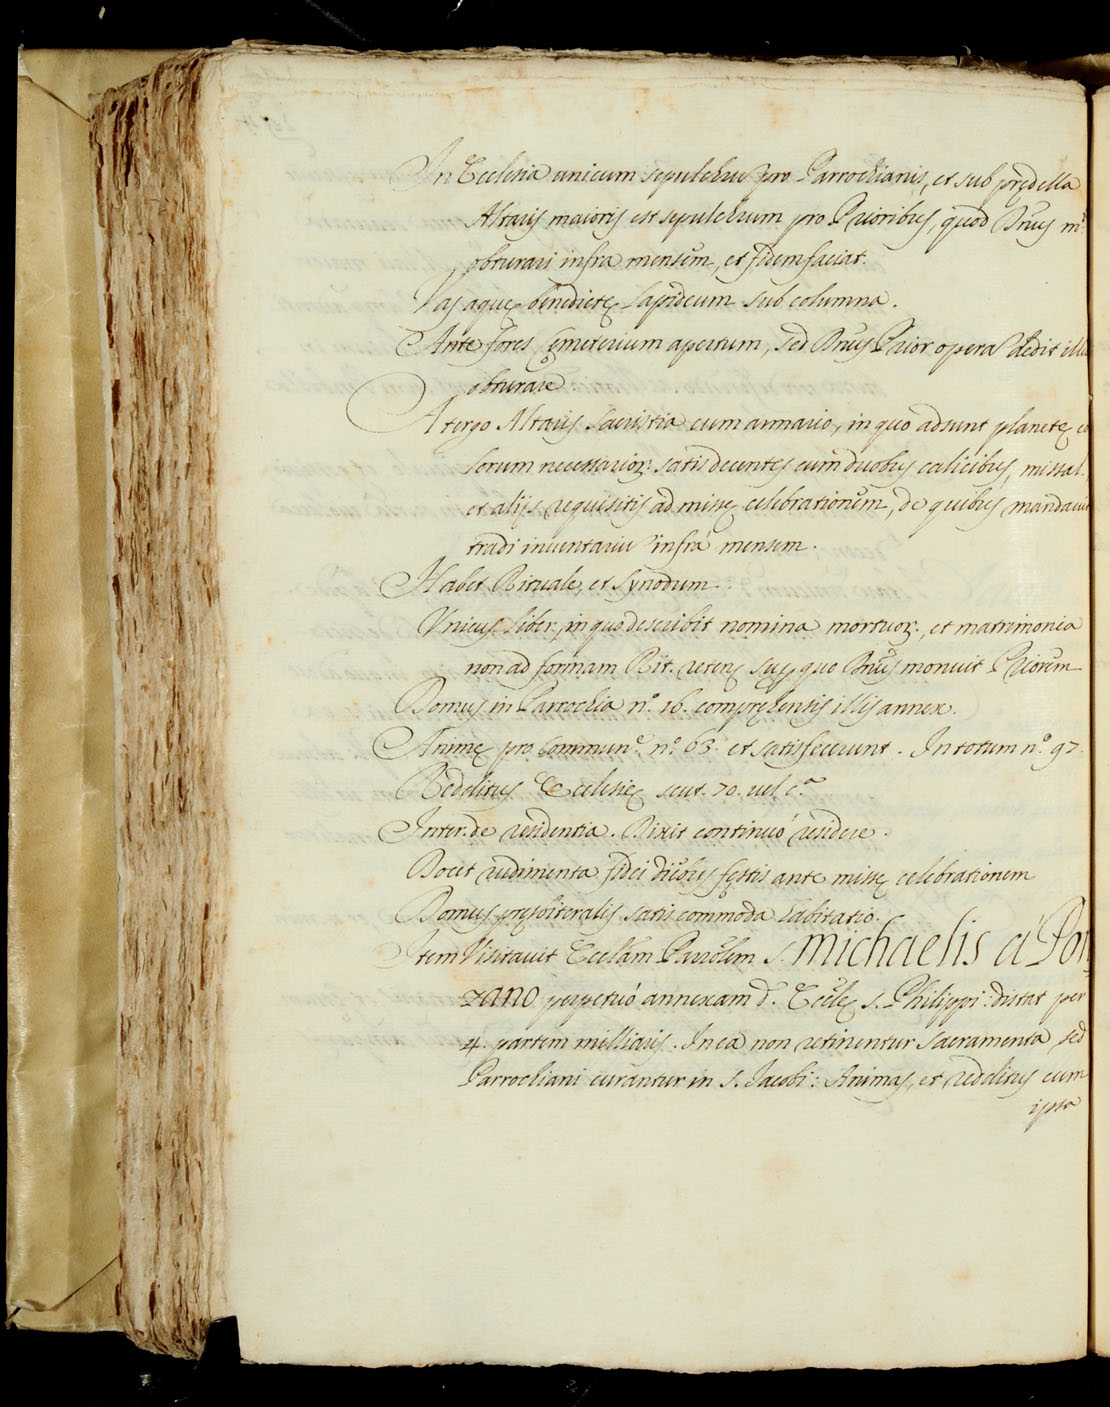 In Ecclesia unicum sepulchrũ pro Parrochianis, et sub prędella
Altaris maioris est sepulchrum pro Prioribus, quod Dñus m.
obturari infra mensem, et fidem faciat.
Vas aquę benedictę lapideum sub columna.
Ante fores Cęmeterium apertum, sed Dñus Prior opera dedit illu
obturare.
A tergo Altaris Sacristia cum armario, in quo adsunt planetę co
lorum necessarioꝝ: satis decentes cum duobus calicibus, missal.
et alijs requisitis ad missę celebrationem, de quibus mandavit
tradi inventariũ infrà mensem.
Habet Rituale, et Synodum.
Unicus liber, in quo describit nomina mortuoꝝ. et matrimonia
non ad formam Rit. Dñus monuit Priorem
Domus in Parrochia n.º 16. comprehensis illis annex.
Animę pro Commun.e n.º 63. et satisfecerunt. In totum n.º 97.
Redditus Ecclesię scut. 70. vel c.a
Inter. de residentia. Dixit continuò residere.
Docet rudimenta fidei diebus festis ante missę celebrationem
Domus presbiteralis satis commoda habitatio.
Item Visitavit Ecclãm Parrõlem S. Michaelis à Por
zano perpetuò annexam d. Ecclę S. Philippi: distat per
4. partem milliaris. In ea non retinentur sacramenta, sed
Parrochiani curantur in S. Jacobi: Animas, et redditus cum
ipsa